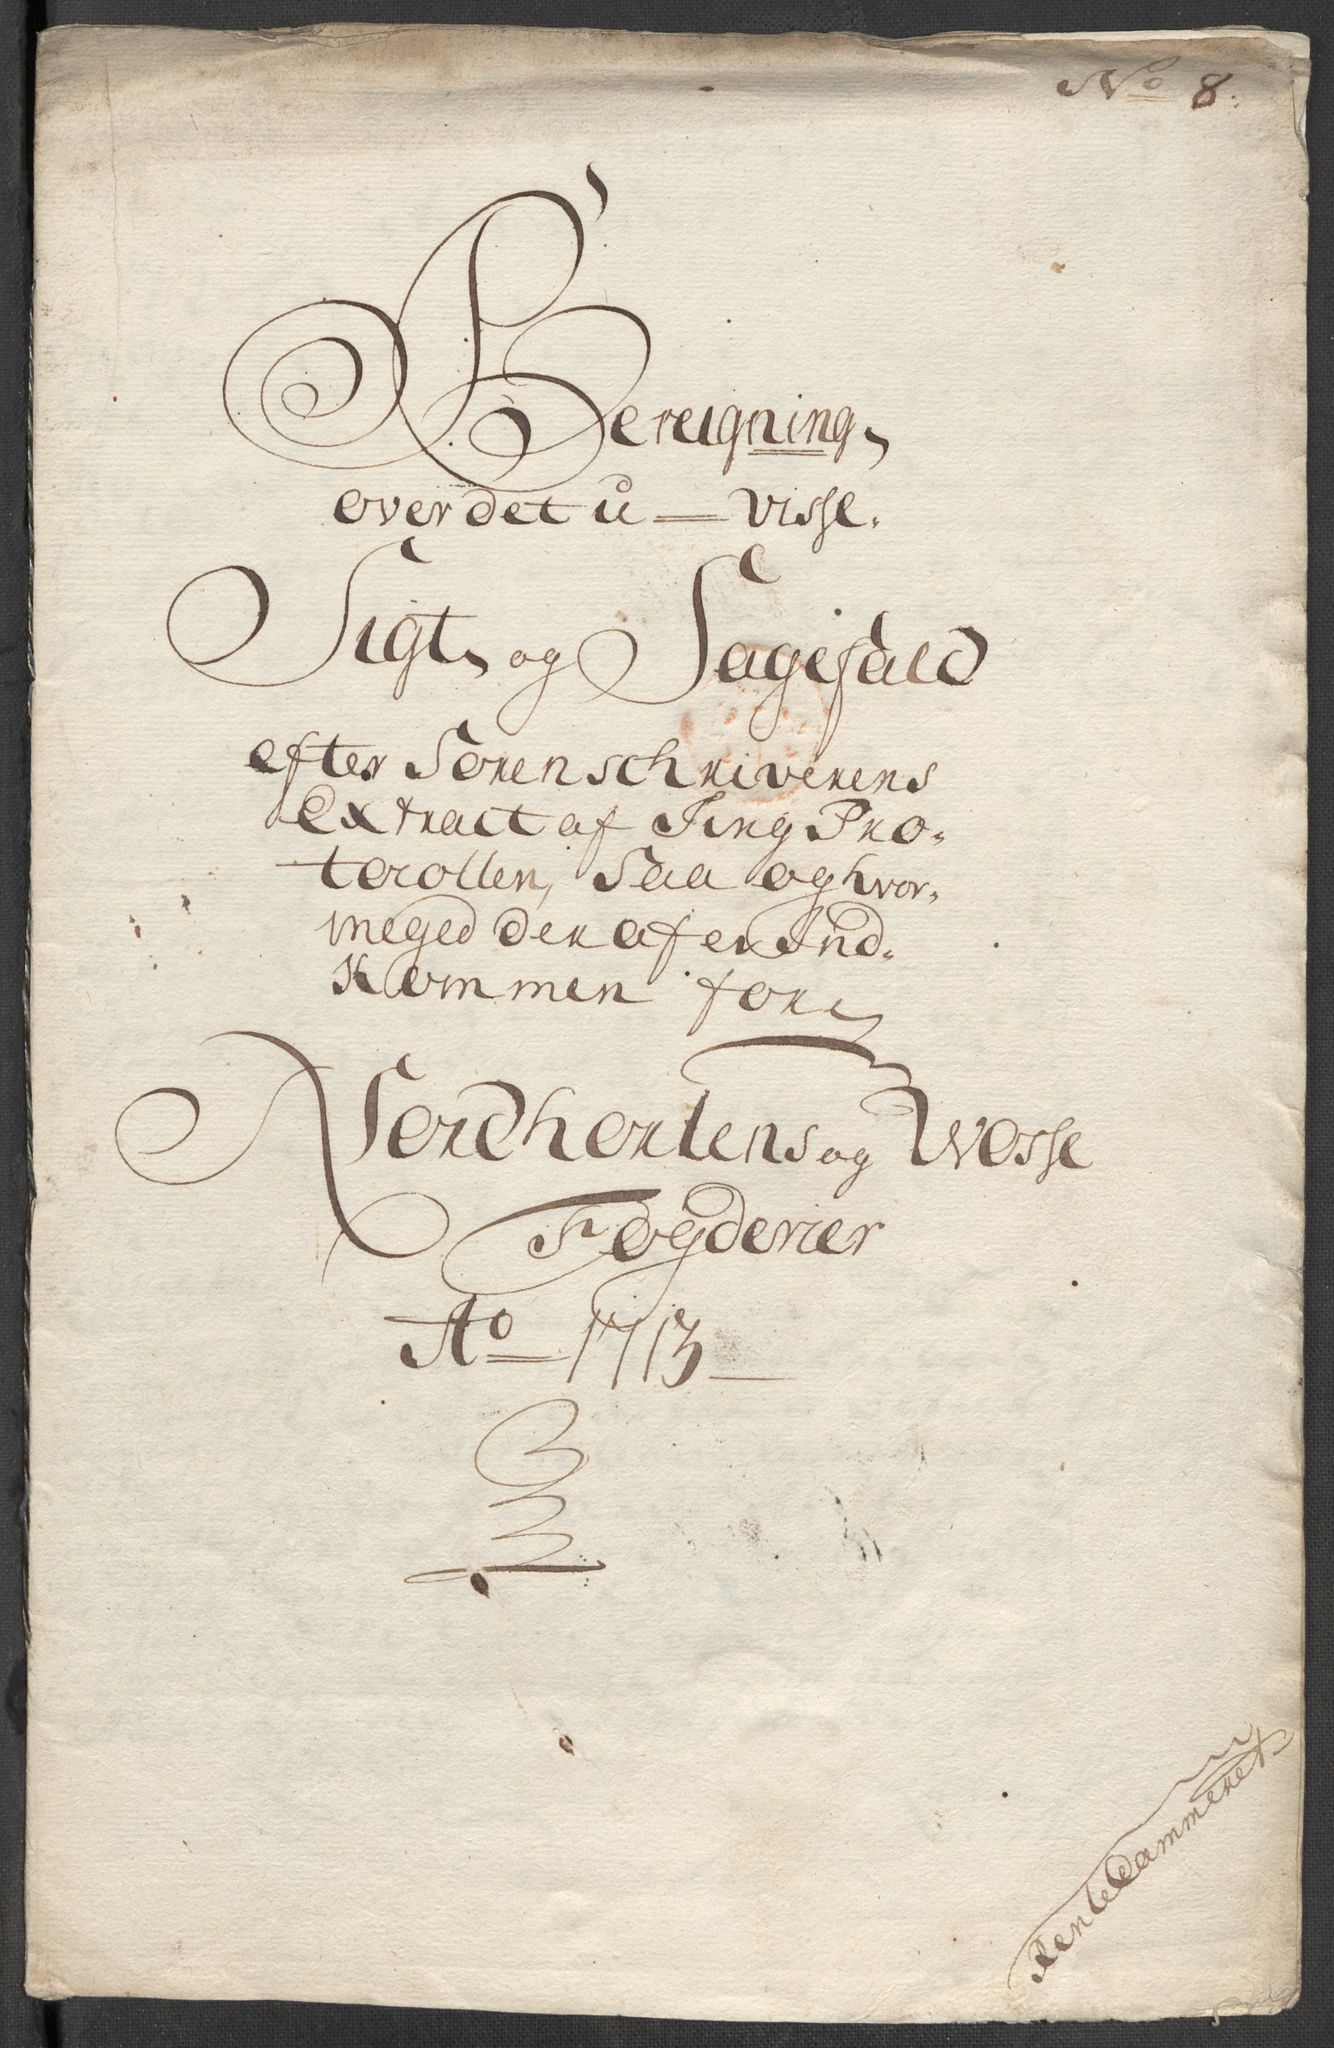 No 8.
Bereigning
over det u-visse
Sigt og Sagefald
efter Sorenschriverens
Extract af Ting Pro-
tocollen, Saa og hvor-
meged der af er Ind-
Kommen for
Nordhorlens og Wosse
Fogderier
Ao 1713
RenteCammeret